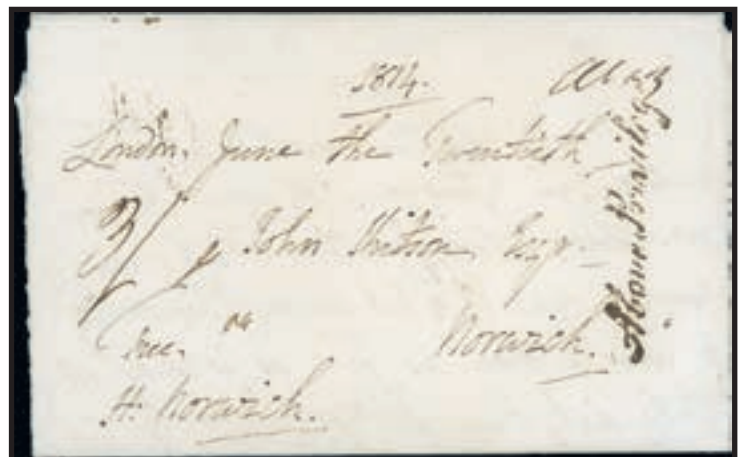 1814.
London. June the Twentieth
3/ John Kitson, Esqr
Norwich.
Free.
H: Norwich.
Above Privilege